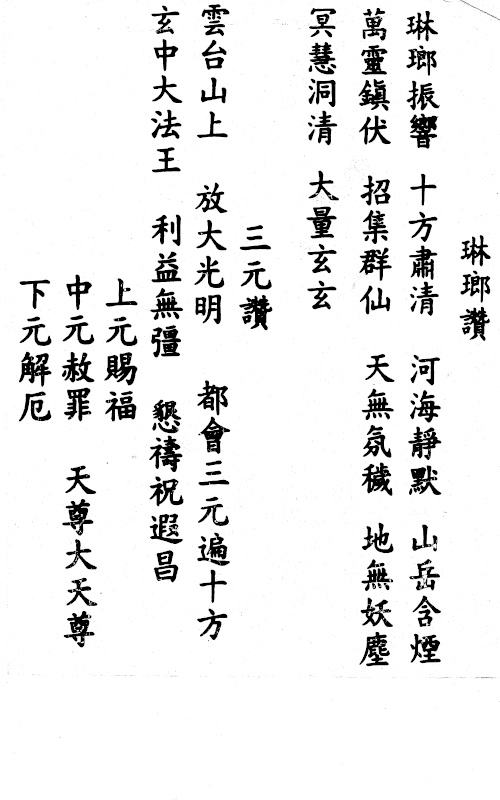 琳瑯讚
琳瑯振響 十方肅清 河海靜默 山岳含煙
萬靈鎮伏 招集群仙 天無氛穢 地無妖塵
冥慧洞清 大量玄玄
三元讚
雲台山上 放大光明 都會三元遍十方
玄中大法王 利益無彊 懇禱祝遐昌
上元賜福
中元赦罪 天尊大天尊
下元解厄